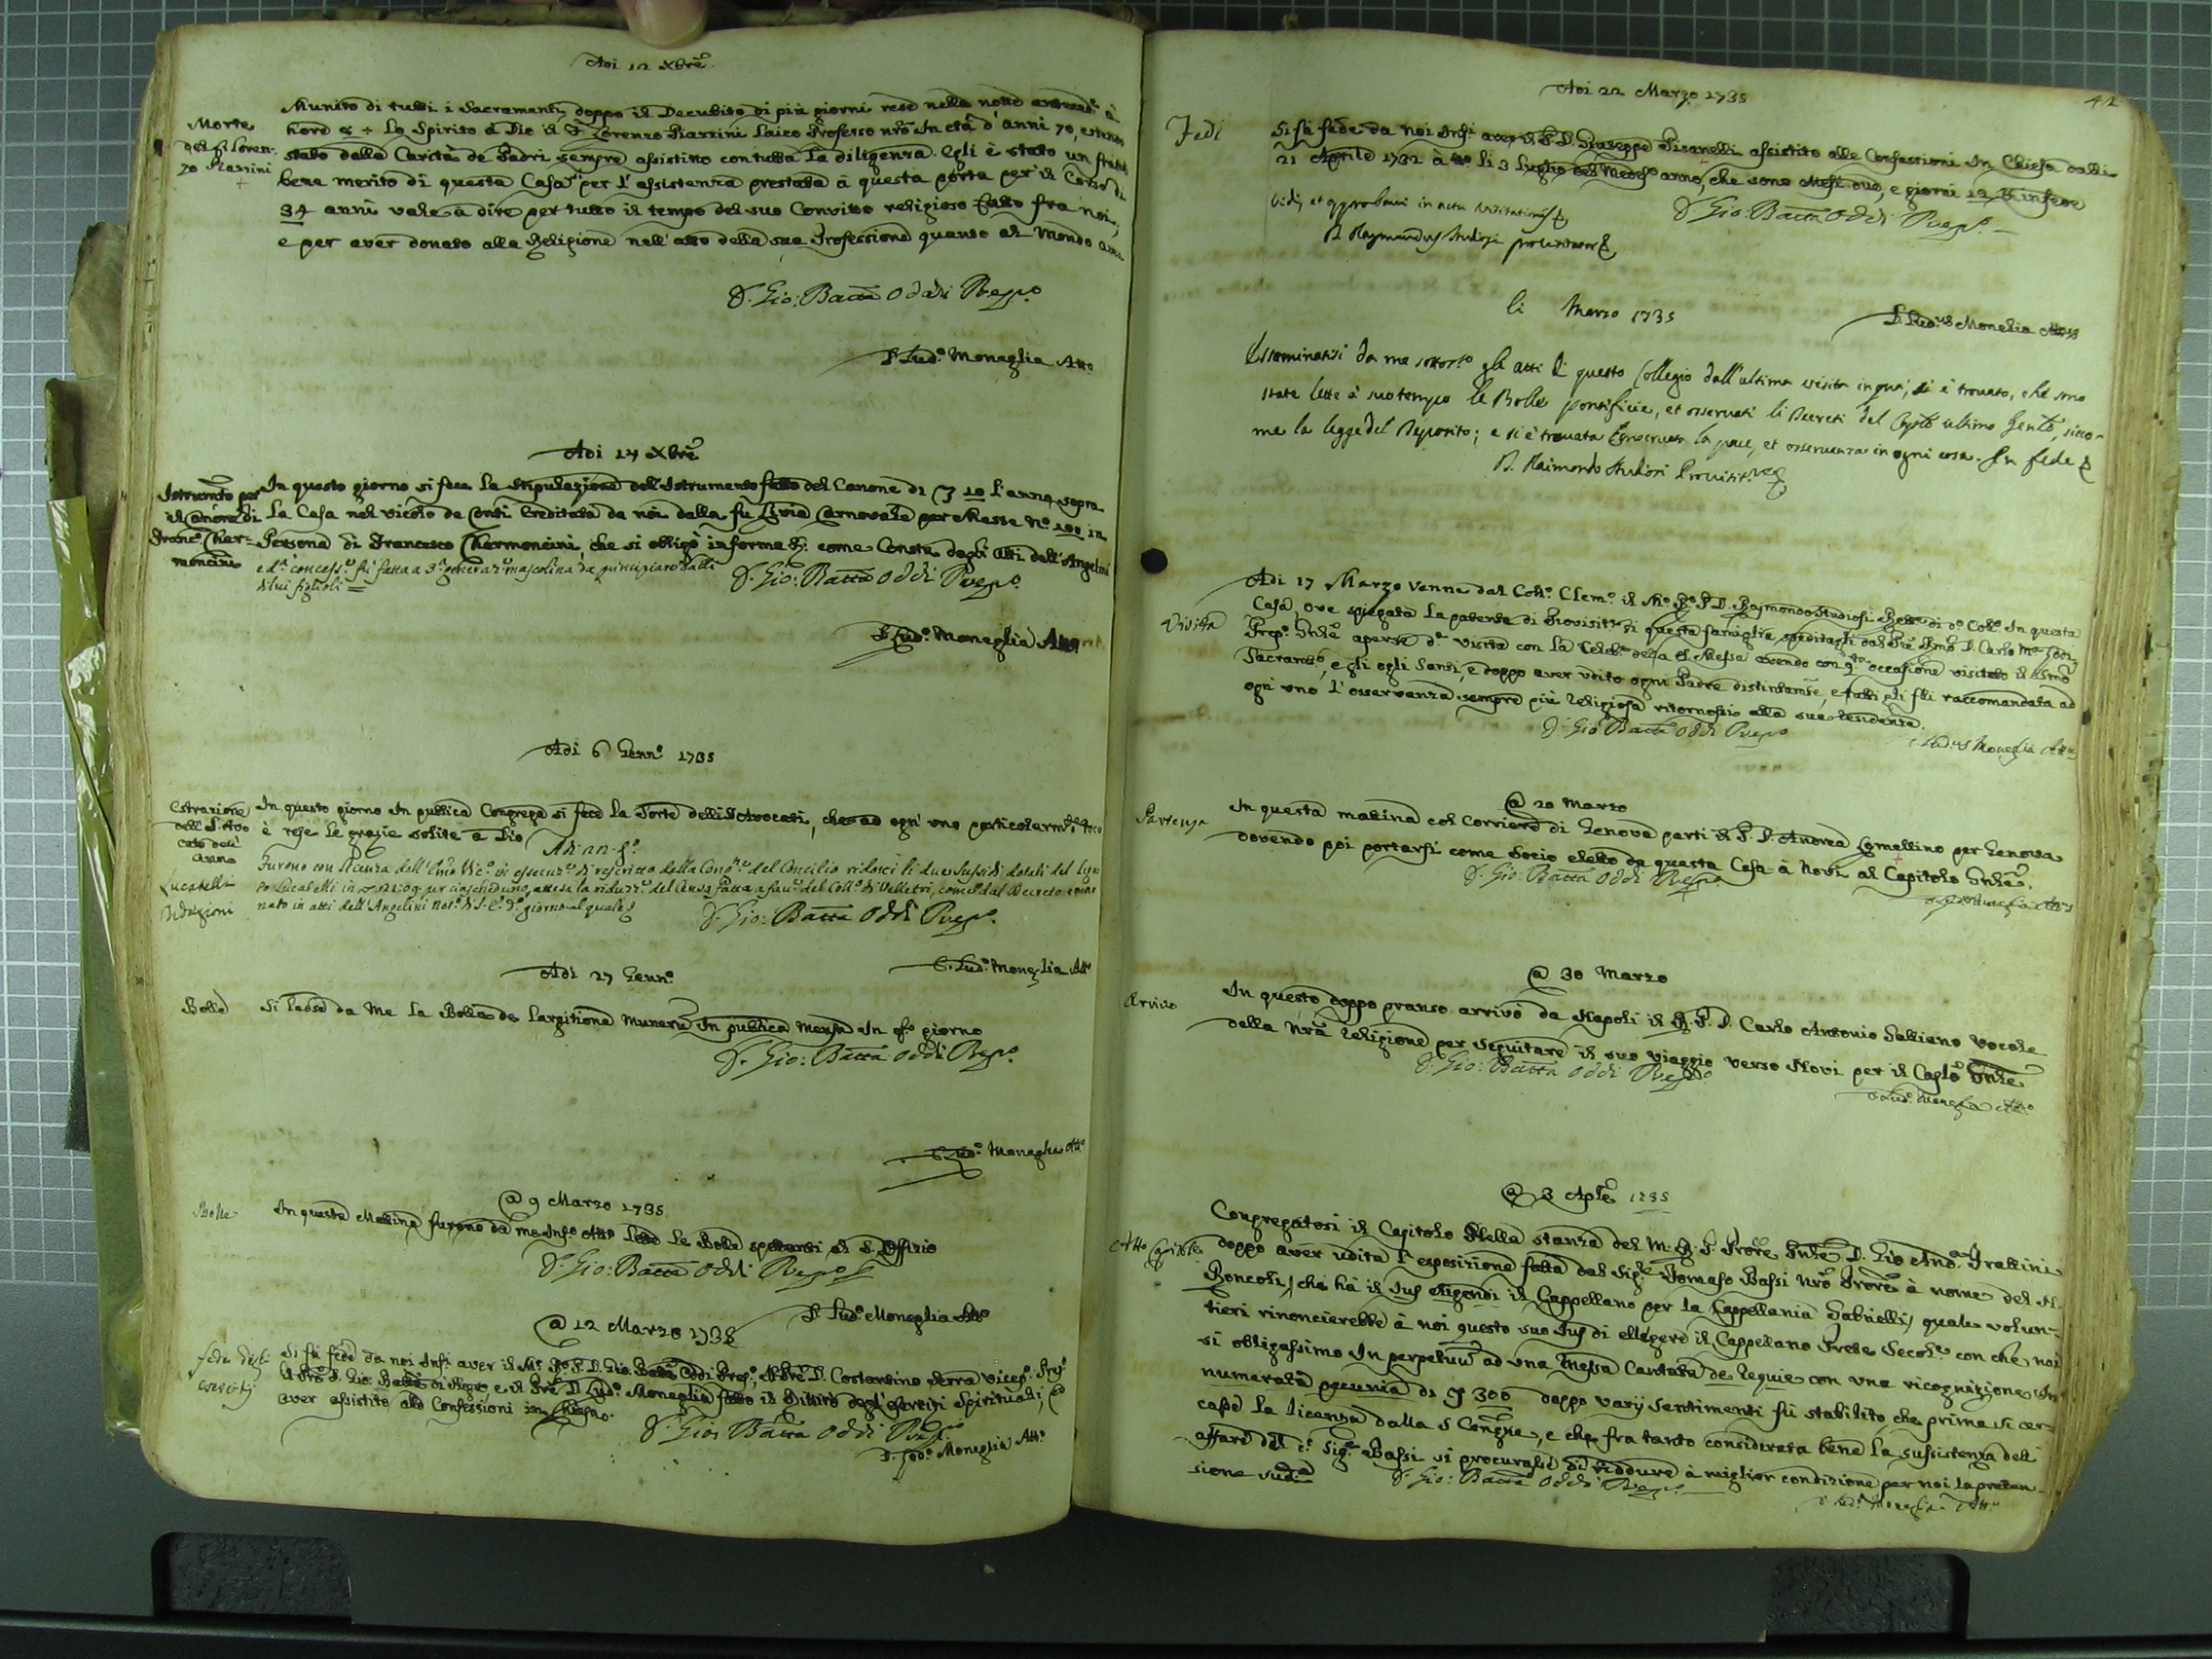 Adi 12 Xbre
Morte
del f. Loren:
zo Razzini
Munito di tutti i Sacramenti, doppo il Decubito di più giorni rese nella notte anteced.e à
hore 5 + lo Spirito à Dio il F. Lorenzo Razzini Laico Professo nro In età d'anni 70,
stato dalla Carità de Padri sempre assistito con tutta la diligenza. Egli è stato un
bene merito di questa Casa per l'assistenza prestata à questa porta per il Corso di
34 anni vale à dire per tutto il tempo del suo Convitto religioso fatto fra noi,
e per aver donato alla Religione nell'atto della sua Professione quanto al Mondo
D. Gio: Batta Oddi Prep.o
D. Lud.o Moneglia Att.o
Adi 14 Xbre
Istrum.to per
il Canone di
Franc.o Char=
moncini
In questo giorno si fece la stipulazione dell'Istrumento fatto del Canone di 10 l'anno, sopra
la Casa nel vicolo de Conti Ereditata da noi dalla fu Livia Carnovale per Messe N.o 100 in
Persona di Francesco Charmoncini, che si obligò in forma &: come Consta dagli Atti dell'Angelini
e d.a concess.e fù fatta a 3.a generaz.e mascolina da principiare dalli
di lui figlioli =
D. Gio: Batta Oddi Prep.o
D. Lud.o Moneglia Att.o
Adi 6 Genn.o 1735
Estrazione
dell' S. Avo
cato dell'
anno
In questo giorno In publica Congrega si fece la Sorte delli SS. Avocati, che ad ogn'uno particolarm.te
è rese le grazie solite à Dio
Adi 22 d.o
Lucatelli
Riduzioni
Furono con licenza dell'Emo Vic.o in essecuz.e di rescritto della Cong.ne del Concilio ridotti li due sussidi dotali del
po Lucatelli in per ciascheduno, attesa la riduz.e del Censo fatta a fav.e del Coll.o di Velletri, come dal Decreto
nato in atti dell'Angelini Not.o d.o giorno al quale &
D. Gio: Batta Oddi Prep.o
D. Lud.o Moneglia Att.o
Adi 27 Genn.o
Bolla
Si lesse da Me la Bolla de Largitione Munerũ In publica Mensa In q.o giorno
D. Gio: Batta Oddi Prep.o
D. Lud.o Moneglia Att.o
@ 9 Marzo 1735
Bolle
In questa Matina furono da me Inf.o Att.o lette le Bolle spettanti al S. Offizio
D. Gio: Batta Oddi Prep.o
D. Lud.o Moneglia Att.o
@ 12 Marzo 1735
fede degli
esercitij
Si fà fede da noi Inf.i aver il M.o R.o P. D. Gio Batta Oddi Prep.o, il Pre D. Costantino Serra Vicep.o
il Pre D. Gio: Batta di Negro, e il Pre D. Lud.o Moneglia fatto il Ritiro degl'Esercizi Spirituali, ed
aver assistito alle Confessioni
D. Gio: Batta Oddi Prep.o
D. Lod.o Moneglia Att.o
42
Adi 22 Marzo 1735
Fedi
Si fà fede da noi Inf.i aver il P. D. Giuseppe Pisanelli assistito alle Confessioni In Chiesa dalli
21 Aprile 1732 à tto li 3 Luglio del Medes.o anno, che sono Mesi due, e giorni 12 In fede
D. Gio: Batta Oddi Prep.o
Vidi, et approbavi in actu visitationis &
D. Raymundus Studiosi provisitator &
D. Lud.us Moneglia Att.s
li Marzo 1735
Essaminatisi da me sottos.o gli atti di questo Collegio dall'ultima visita in quà, si è trovato, che sono
state lette à suo tempo le Bolle pontificie, et osservati li Decreti del Caplo ultimo Genle, sicco=
me la legge del Deposito; e si è trovata conservata la pace, et osservanza in ogni cosa. In fede &
D. Raimondo Studiosi Provisit.re
Visita
Adi 17 Marzo venne dal Coll.o Clem.o il M.o R.o P. D. Raimondo Studiosi Rett.e di d.o Coll.o In questa
Casa, ove spiegata la patente di Provisit.re di questa famiglia speditagli dal Pre Rmo D. Carlo M.a Lodi
Prep.o Gnle aperse d.a visita con la Celeb.e della S. Messa avendo con q.ta occasione visitato il SSmo
Sacram.to, e gli ogli Santi, e doppo aver udito ogni Padre distintam.te, e fatti gli raccomandata ad
ogn'uno l'osservanza sempre più religiosa ritornossi alla sua residenza.
D. Gio Batta Oddi Prep.o
D. Lud.us Moneglia Att.s
@ 20 Marzo
Partenza
In questa matina col Corriere di Genova partì il P. D. Andrea Lomellino per Genova
dovendo poi portarsi come Socio eletto da questa Casa à Novi al Capitolo Gnle.
D. Gio: Batta Oddi Prep.o
D. Lud. Moneglia Att.s
@ 30 Marzo
Arrivo
In questo doppo pranso arrivò da Napoli il R. P. D. Carlo Antonio Galliano Vocale
della Nrã Religione per seguitare il suo viaggio verso Novi per il Caplo Gnle
D. Gio: Batta Oddi Prep.o
D. Lud.o Moneglia Att.o
@ 3 Aple 1735
Atto Capitolare
Congregatosi il Capitolo Nella stanza del M. R. P. Prore Gnle D. Gio And.a Frattini
doppo aver udita l'esposizione fatta dal Sig.e Tomaso Bassi nrõ Prore à nome del
Boncori, che hà il Jus eligendi il Cappellano per la Cappellania Gabrielli, quale volun=
tieri rinoncierebbe à noi questo suo Jus di ellegere il Cappellano Prete Secol.e con che noi
si obligassimo In perpetuũ ad una Messa Cantata de Requie con una ricognizione In
numerata pecunia di 300 doppo varij sentimenti fù stabilito, che prima si cer=
casse la licenza dalla S Congne, e che fra tanto considerata bene la sussistenza dell'
affare del Sig.e Bassi si procurasse di riddurre à miglior condizione per noi la preten=
sione sud.a
D. Gio: Batta Oddi Prep.o
D. Lud.o Moneglia Att.o